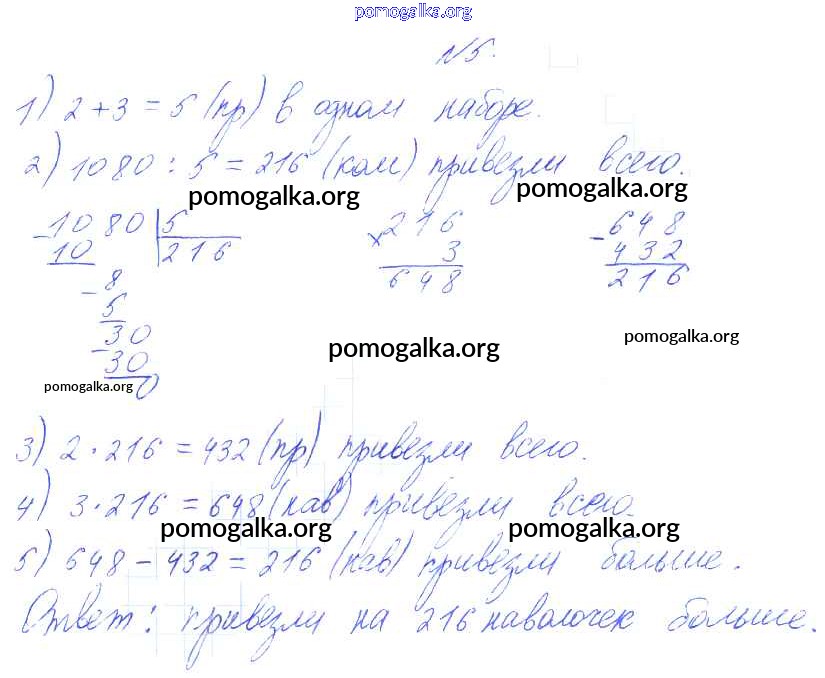 pomogalka.org
№5.
1) 2 + 3 = 5 (пр) в одном наборе.
2) 1080 : 5 = 216 (ком) привезли всего.
pomogalka.org pomogalka.org
- 1080 | 5 × 216 - 648
10 216 3 432
- 8 648 216
5
- 30 pomogalka.org
30 pomogalka.org
pomogalka.org 0
3) 2 · 216 = 432 (пр) привезли всего.
4) 3 · 216 = 648 (нав) привезли всего.
pomogalka.org pomogalka.org
5) 648 - 432 = 216 (нав) привезли больше.
Ответ: привезли на 216 наволочек больше.